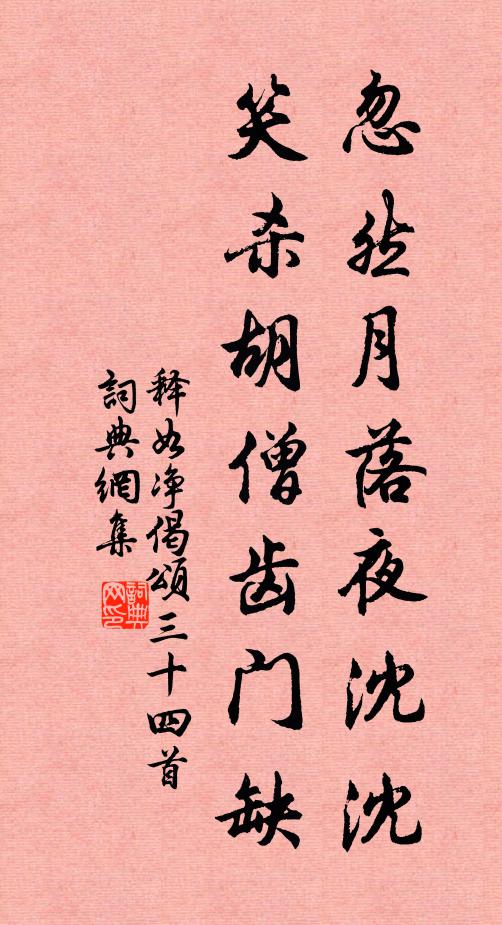 忽然月落夜沈沈
笑杀胡僧齿门缺
释如净偈颂三十四首
詞典網集
詞典网印